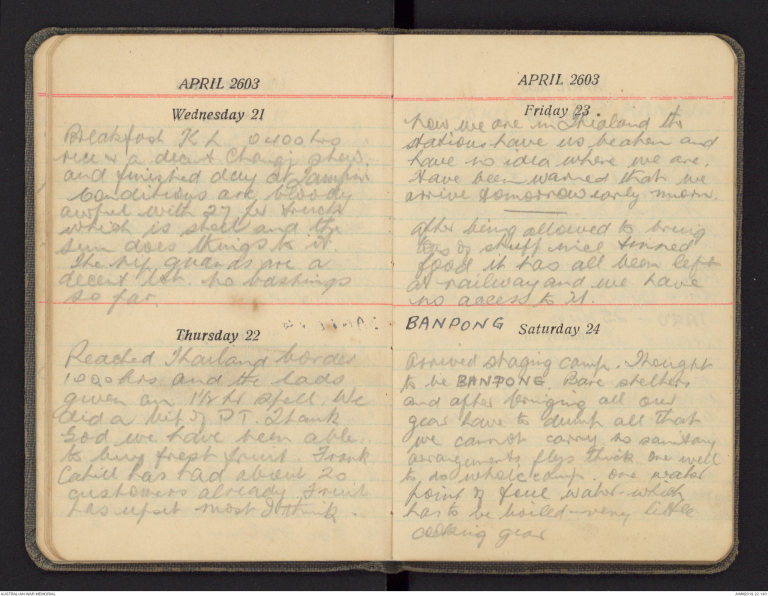 APRIL 2603
Wednesday 21
Breakfast K L 0400 hrs
a decent Changi
and finished day at
Conditions are bloody
awful with 27 per truck
which is steel and the
sun does things to it.
The nip guards are a
decent lot. no bashings
so far.
Thursday 22
Reached Thailand border
1000 hrs and the lads
given an 1½ hr spell. We
did a bit of P T. Thank
God we have been able
to buy fresh fruit. Frank
Cahill has had about 20
customers already. Fruit
has upset most I think.
APRIL 2603
Friday 23.
now we are in Thailand the
stations have us beaten and
have no idea where we are.
Have been warned that we
arrive tomorrow early morn.
After being allowed to bring
of stuff nice tinned
food it has all been left
at railway and we have
no access to it.
BANPONG Saturday 24
Arrived staging camp. Thought
to be BANPONG. Bare shelters
and after bringing all our
gear have to dump all that
we cannot carry no sanitary
arrangements flys thick one well
to do whole camp. one water
point of fine water which
has to be boiled very little
cooking gear
AUSTRALIAN WAR MEMORIAL